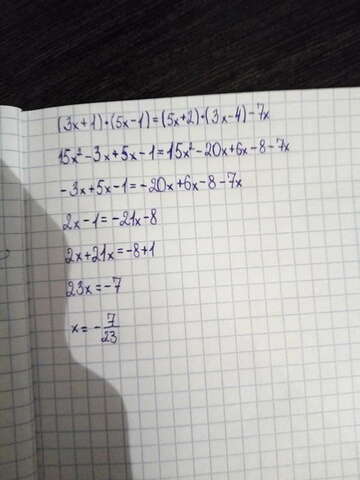 (3x+1)·(5x-1)=(5x+2)·(3x-4)-7x
15x²-3x+5x-1=15x²-20x+6x-8-7x
-3x+5x-1=-20x+6x-8-7x
2x-1=-21x-8
2x+21x=-8+1
23x=-7
x=-7/23